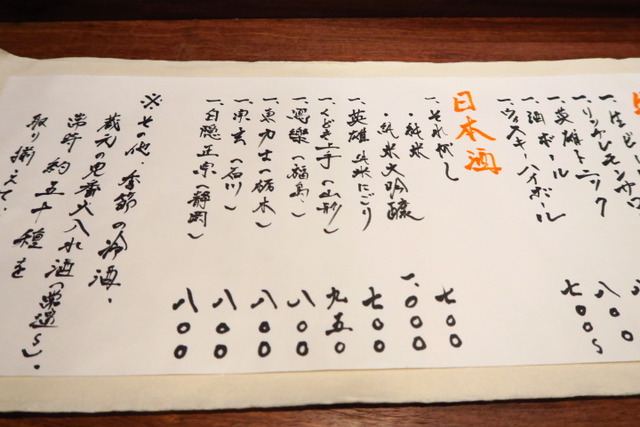 一、リッケレモンサワ
一、英雄トニック
一、酒ボール
一、ウィスキーハイボール 七〇〇〜
日本酒
一、それがし
・純米 七〇〇
・純米大吟醸 一、〇〇〇
一、英雄 純米にごり 七〇〇
一、くどき上手（山形） 九五〇
一、（福島） 八〇〇
一、東力士（栃木） 八〇〇
一、宗玄（石川） 八〇〇
一、白隠正宗（静岡） 八〇〇
※その他・季節の冷酒・
蔵元の
常時約五十種を
取り揃えて